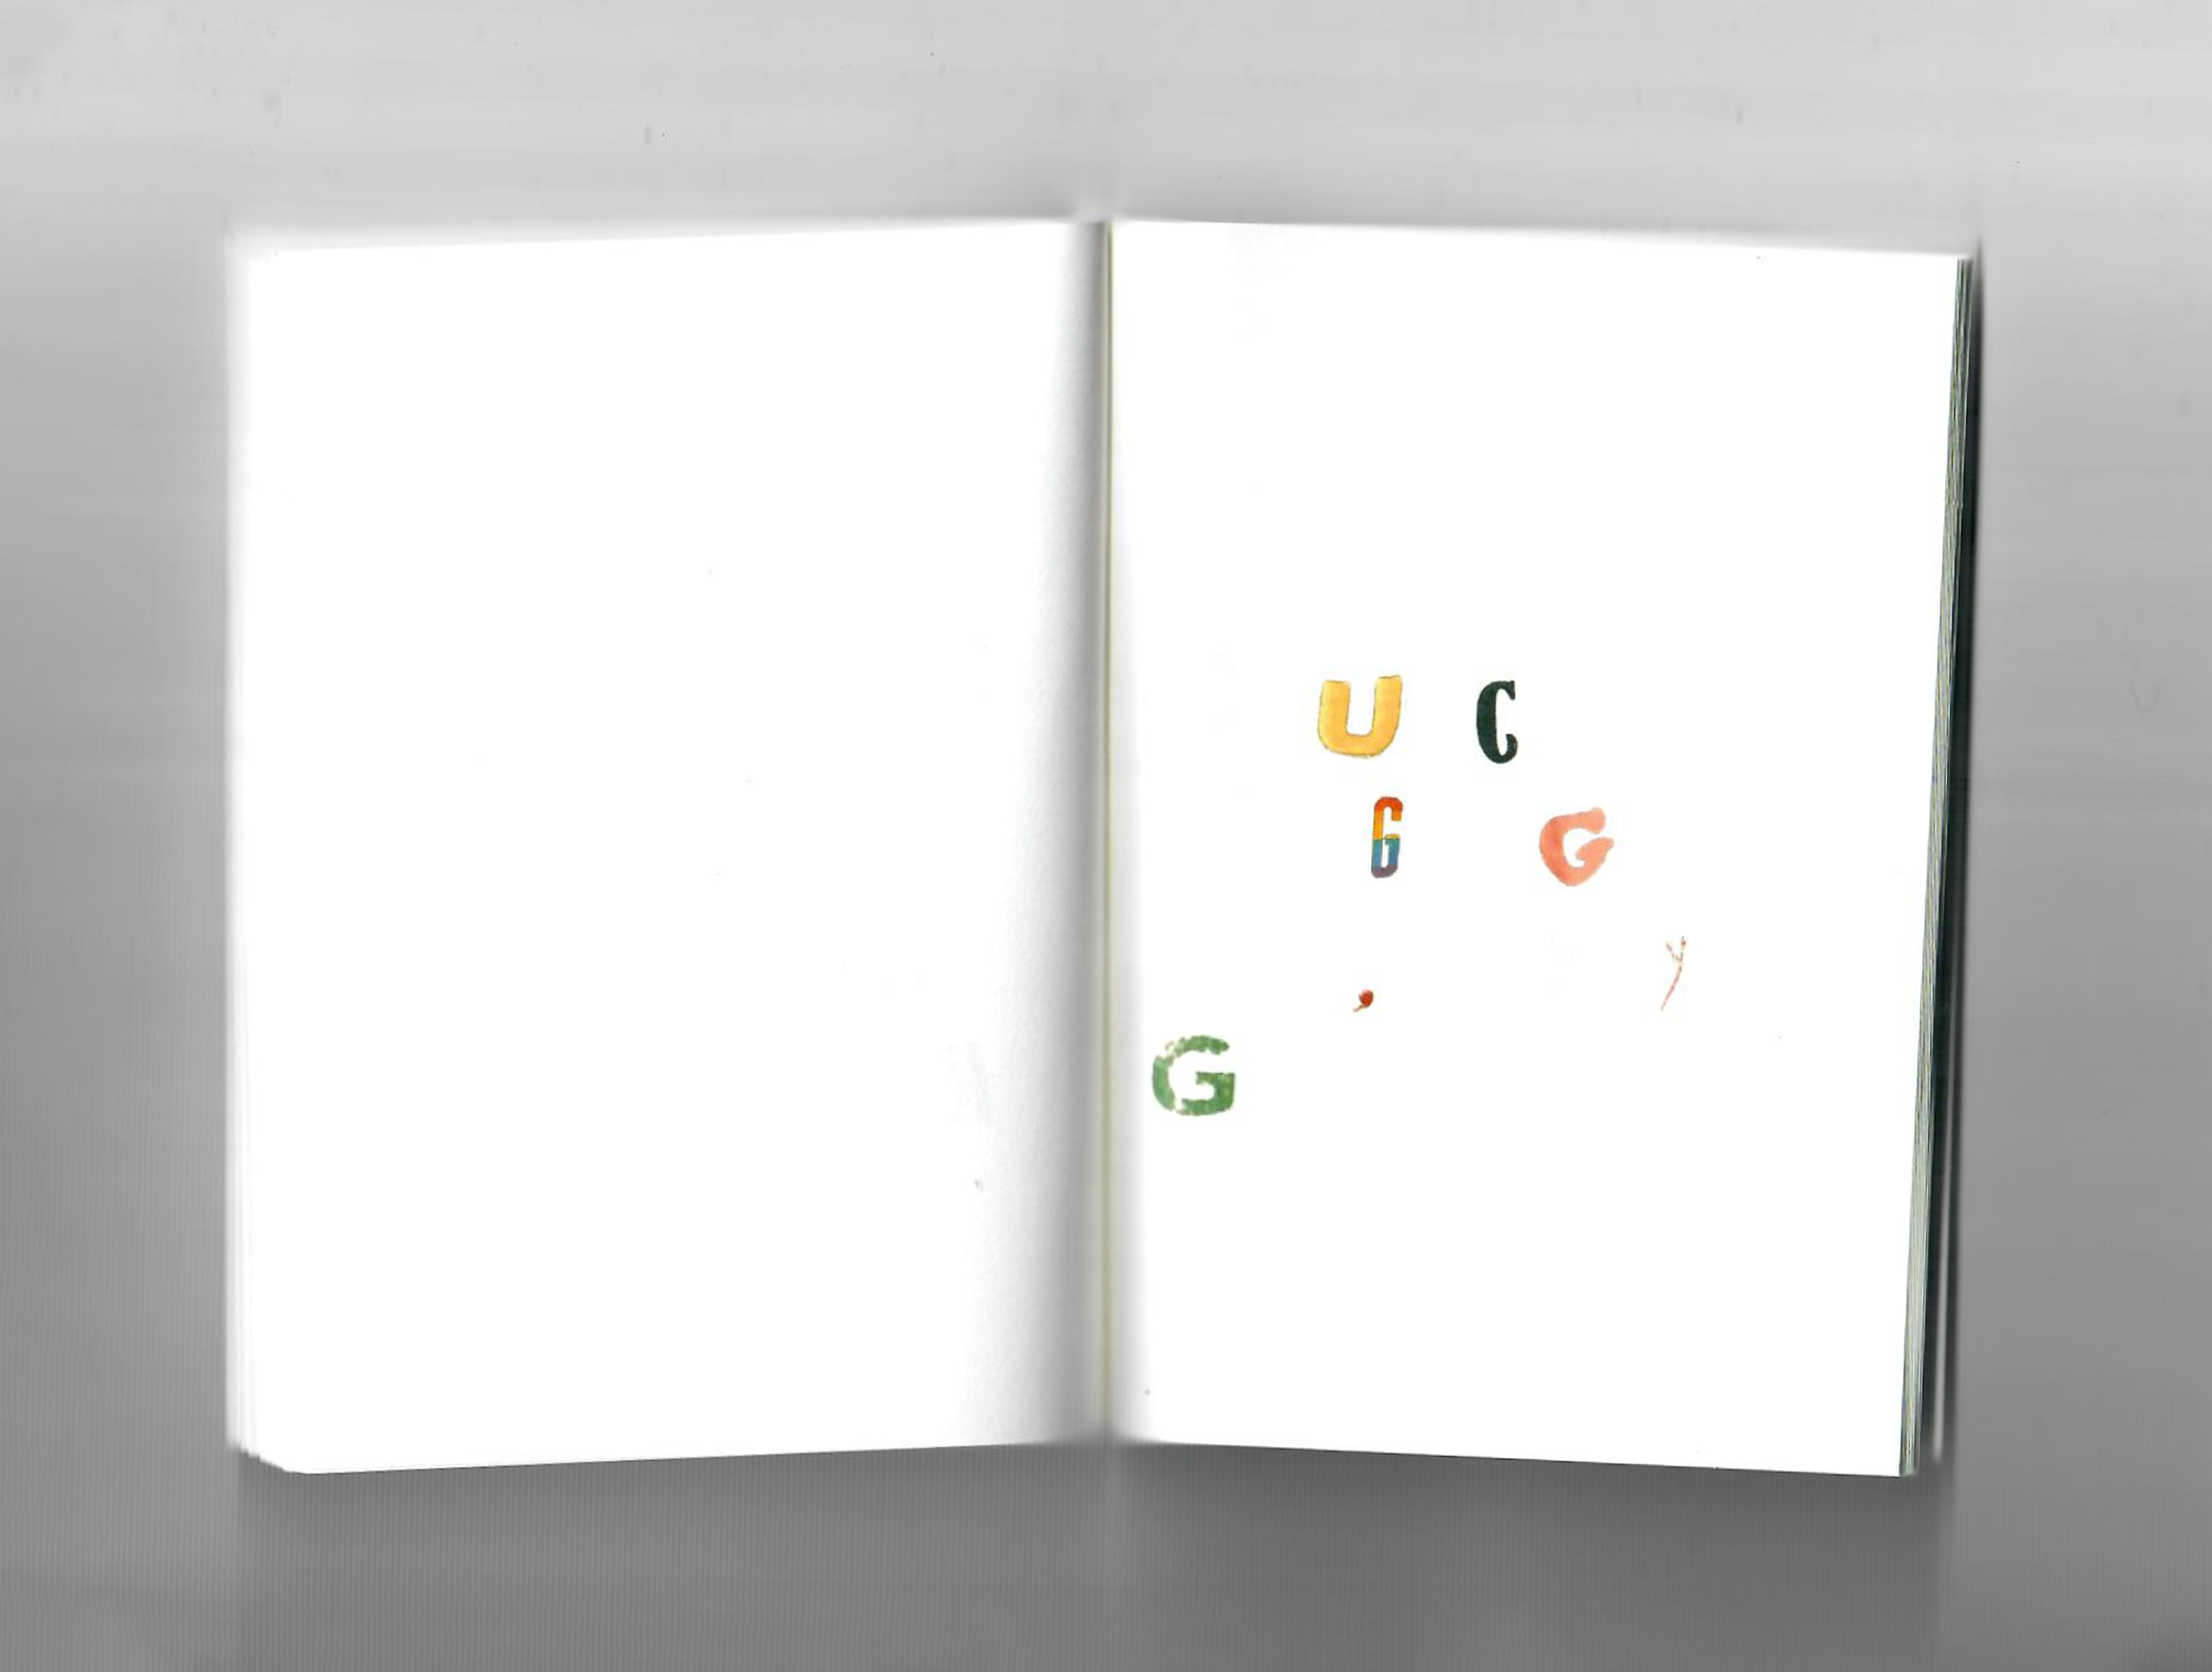 U C
G G
, y
G